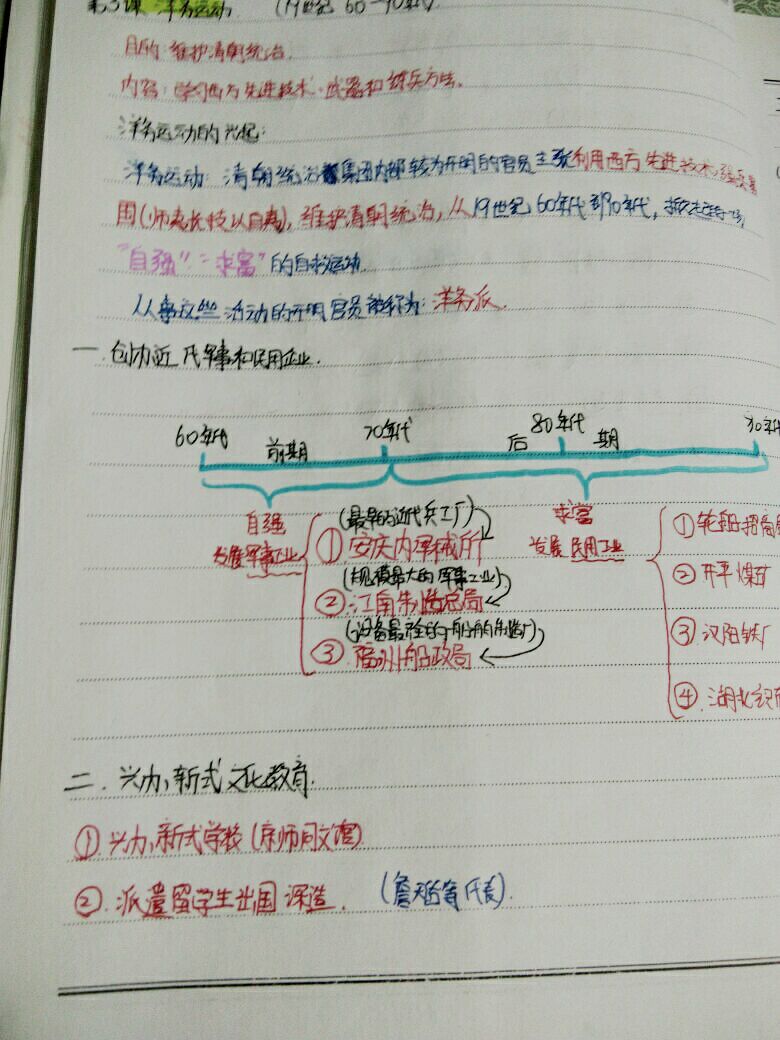 第3课 洋务运动 (19世纪60—90年代)
目的：维护清朝统治.
内容：学习西方先进技术.武器和练兵方法.
洋务运动的兴起：
洋务运动：清朝统治集团内部较为开明的官员主张利用西方先进技术,强兵富
国(师夷长技以自强),维护清朝统治,从19世纪60年代到90年代,掀起一场
"自强""求富"的自救运动.
从事这些活动的开明官员被称为：洋务派.
一.创办近代军事和民用企业.
60年代 前期 70年代 后 80年代 期 90年代
自强
发展军事工业
(最早的近代兵工厂)
①安庆内军械所
(规模最大的军事工业)
②江南制造总局
(设备最全的船舶制造厂)
③福州船政局
求富
发展民用工业
①轮船招商
②开平煤矿
③汉阳铁厂
④湖北织布
二.兴办新式文化教育.
①兴办新式学校(京师同文馆)
②派遣留学生出国深造. (詹天佑等代表).